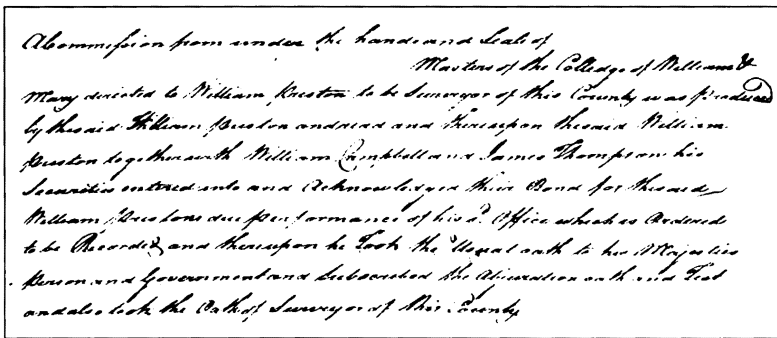 A Commission from under the hands and Seals of
Masters of the Colledge of William &
Mary directed to William Preston to be Surveyor of this County was produced
by the said William Preston and read and thereupon the said William
Preston together with William Campbell and James Thompson his
Securities entered into and Acknowledged their Bond for the said
William Prestons due performance of his sd. Office which is Ordered
to be Recorded and thereupon he Took the Usual oath to his Majesties
Person and Government and Subscribed the Abjuration oath and Test
and also took the Oath of Surveyor of this County